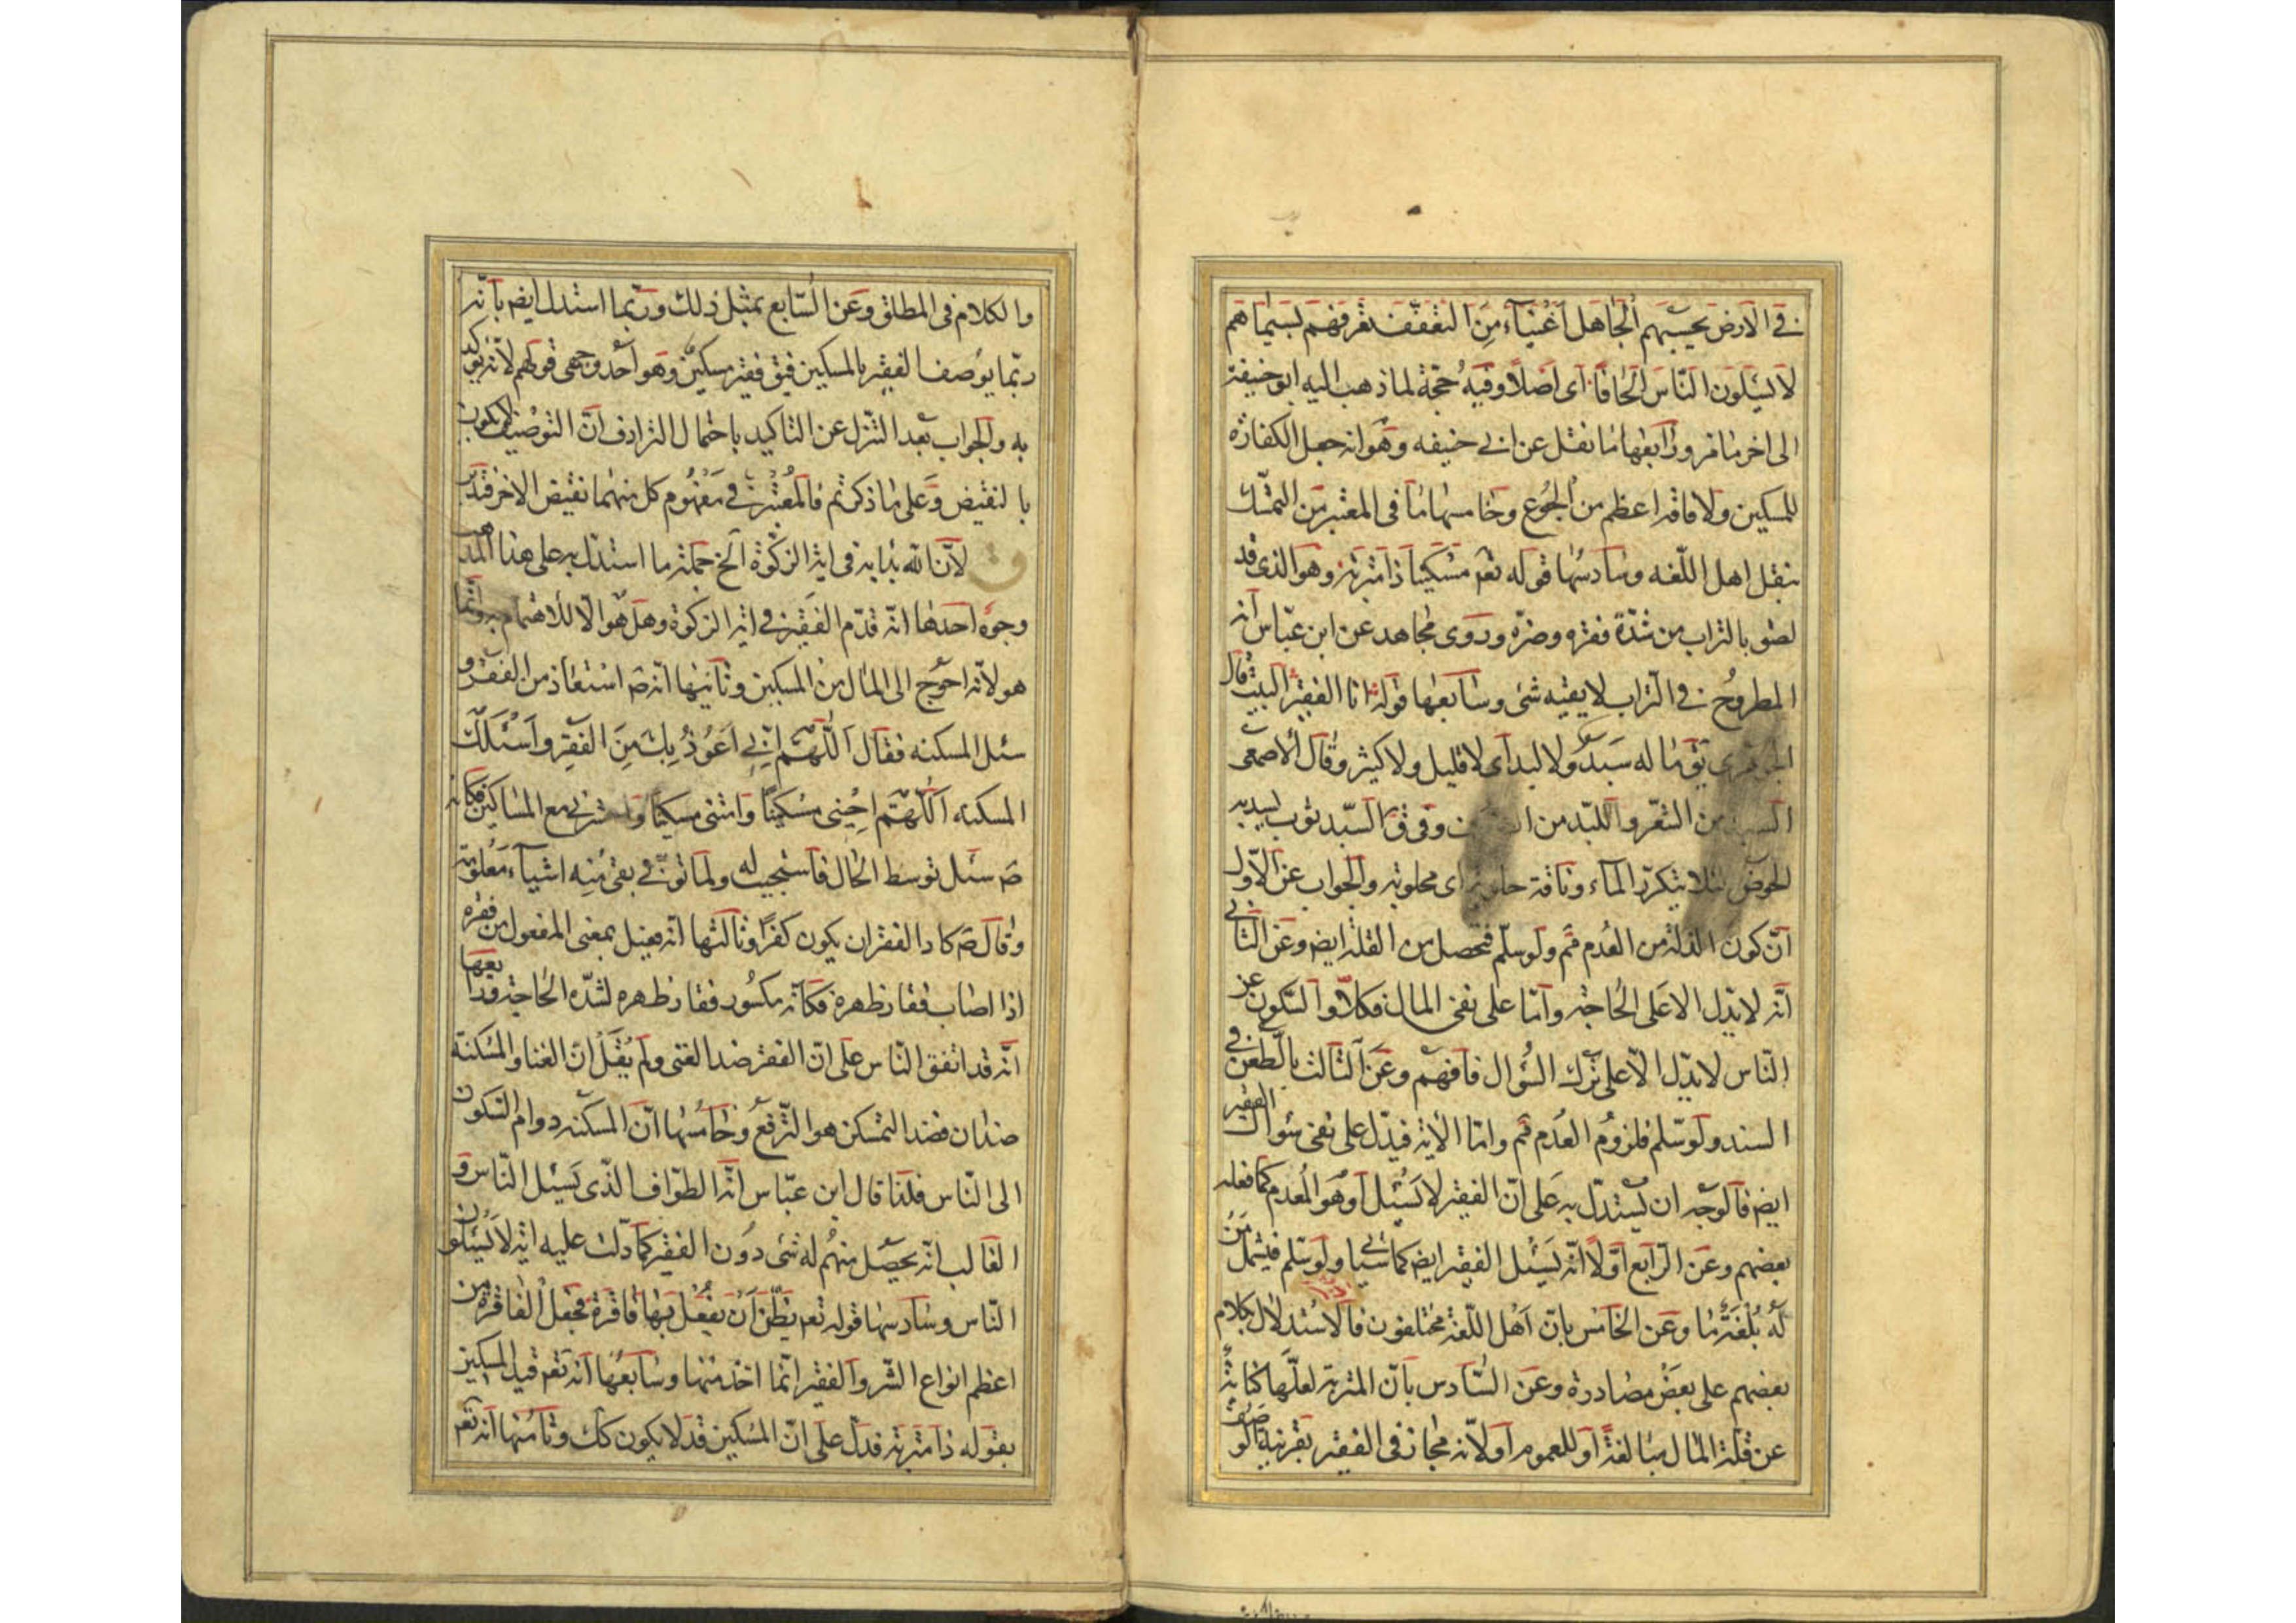 في الارض يحسبهم الجاهل اغنيآء من التعفف تعرفهم بسيماهم
لا يسئلون الناس الحافا اى اصلا وفيه حجة لما ذهب اليه ابو حنيفة
الى اخر ما مر ورابعها ما نقل عن ابي حنيفه وهو انه جعل الكفارة
للمسكين ولا فاقة اعظم من الجوع وخامسها ما في المعتبر من التمسك
بنقل اهل اللغه وسادسها قوله تعم مسكينا ذا متربة وهو الذى قد
لصق بالتراب من شدة فقره وضره وروى مجاهد عن ابن عباس انه
المطروح في التراب لا يقيه شئ وسابعها قوله اما الفقير البيت قال
الجوهرى يق ما له سبد ولا لبد اى لا قليل ولا كثير وقال الاصمعى
السبد من الشعر واللبد من وفي ق السبد ثوب يسد به
الحوض لئلا يتكدر المآء وناقة حلوبة اى محلوبة والجواب عن الاول
ان كون الذلة من العدم مم ولو سلم فتحصل من القلة ايض وعن الثاني
انه لا يدل الا على الحاجة واما على نفى المال فكلا والسكون عن
الناس لا يدل الا على ترك السؤال فافهم وعن الثالث بالطعن في
السند ولو سلم فلزوم العدم مم واما الاية فيدل على نفى سؤال الفقير
ايض فالوجه ان يستدل به على ان الفقير لا يسئل او هو المعدم كما فعله
بعضهم وعن الرابع اولا انه يسئل الفقير ايض كما سياتي ولو سلم فيشمل من
له بلغة ما وعن الخامس بان اهل اللغة مختلفون فالاستدلال بكلام
بعضهم على بعض مصادرة وعن السادس بان المتربة لعلها كناية
عن قلة المال مبالغة او للعموم او لانه مجاز في الفقير بقرينة الوصف
والكلام في المطلق وعن السابع بمثل ذلك وربما استدل ايض بانه
ربما يوصف الفقير بالمسكين فيق فقير مسكين وهو احد وجهى قولهم لانه يؤكد
به والجواب بعد التنزل عن التاكيد باحتمال الترادف ان التوصيف لا يكون
بالنقيض وعلى ما ذكرتم فالمعتبر في مفهوم كل منهما نقيض الاخر فتدبر
ق لان الله بدا به في اية الزكوة الخ جملة ما استدل به على هذا المذهب
وجوه احدها انه قدم الفقير في اية الزكوة وهل هو الا للاهتمام به وانما
هو لانه احوج الى المال من المسكين وثانيها انه ص استعاذ من الفقر و
سئل المسكنه فقال اللهم اني اعوذ بك من الفقر واسئلك
المسكنه اللهم احينى مسكينا وامتنى مسكينا واحشرني مع المساكين فكانه
ص سئل توسط الحال فاستجيب له ولما توفي بقى منه اشياء معلومة
وقال ص كاد الفقر ان يكون كفرا وثالثها انه فعيل بمعنى المفعول من فقره
اذا اصاب فقار ظهره فكانه مكسور فقار ظهره لشدة الحاجة ورابعها
انه قد اتفق الناس على ان الفقر ضد الغنى ولم يقل ان الغنا والمسكنة
ضدان فضد التمسكن هو الترفع وخامسها ان المسكنه دوام السكون
الى الناس فلذا قال ابن عباس انه الطواف الذى يسئل الناس و
الغالب انه يحصل منهم له شئ دون الفقير كما دلت عليه اية لا يسئلون
الناس وسادسها قوله تعم يظن ان يفعل بها فاقرة فجعل الفاقرة من
اعظم انواع الشر والفقير انما اخذ منها وسابعها انه تعم قيد المسكين
بقوله ذا متربة فدل على ان المسكين قد لا يكون كك وثامنها انه تعم